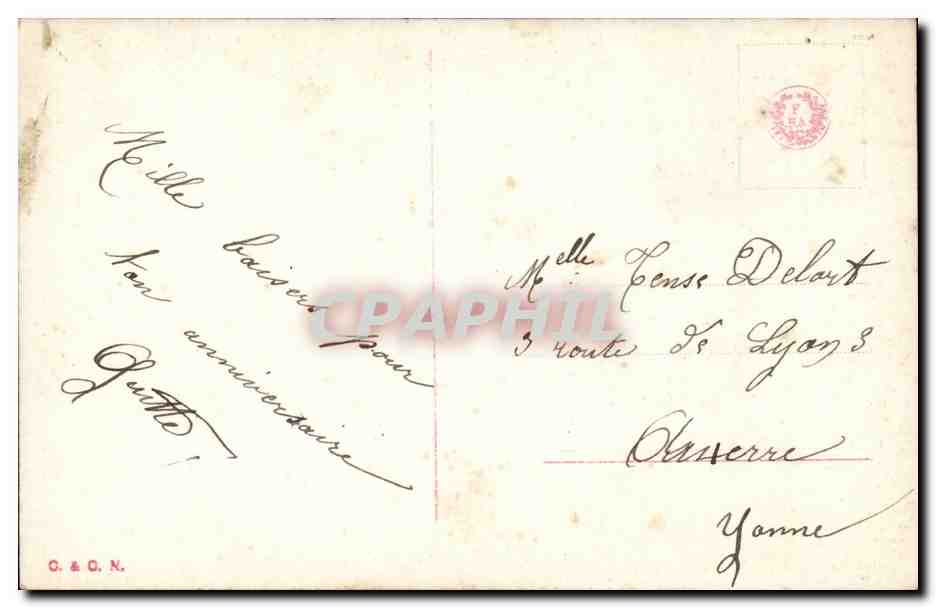 Mille baisers pour
ton anniversaire
Melle Delort
3 route de Lyon 3
Auxerre
Yonne
CPAPHIL
C. & C. N.